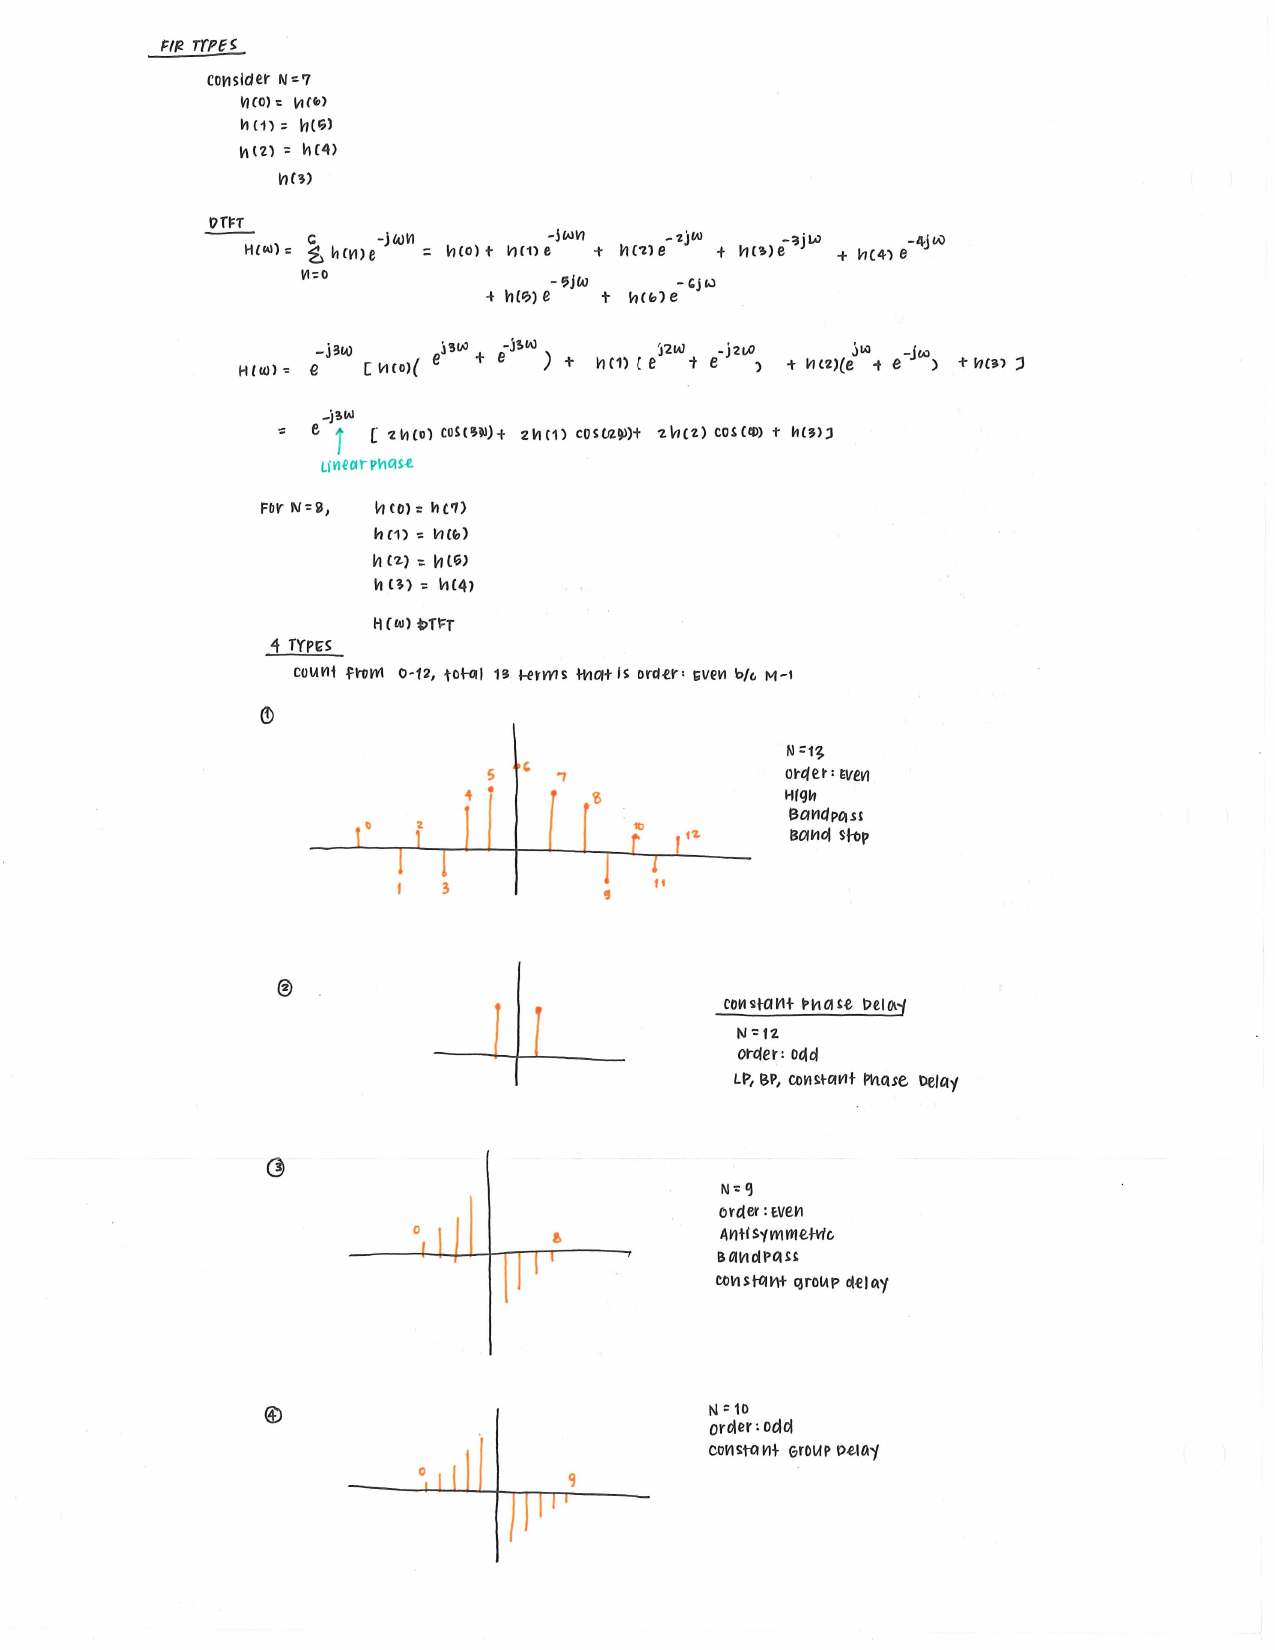 FIR TYPES
consider N=7
h(0) = h(6)
h(1) = h(5)
h(2) = h(4)
h(3)
DTFT
H(ω) = 6 Σ n=0 h(n)e^-jωn = h(0) + h(1)e^-jωn + h(2)e^-2jω + h(3)e^-3jω + h(4)e^-4jω
+ h(5)e^-5jω + h(6)e^-6jω
H(ω) = e^-j3ω [h(0)(e^j3ω + e^-j3ω) + h(1)(e^j2ω + e^-j2ω) + h(2)(e^jω + e^-jω) + h(3)]
= e^-j3ω [2h(0) cos(3ω) + 2h(1) cos(2ω) + 2h(2) cos(ω) + h(3)]
Linear phase
For N=8, h(0) = h(7)
h(1) = h(6)
h(2) = h(5)
h(3) = h(4)
H(ω) DTFT
4 TYPES
count from 0-12, total 13 terms that is order: Even b/c M-1
①
N=13
order: Even
High
Bandpass
Band stop
0 1 2 3 4 5 6 7 8 9 10 11 12
②
constant Phase Delay
N=12
order: odd
LP, BP, constant Phase Delay
③
N=9
order: Even
Antisymmetric
Bandpass
constant group delay
0 8
④
N=10
order: odd
constant Group Delay
0 9